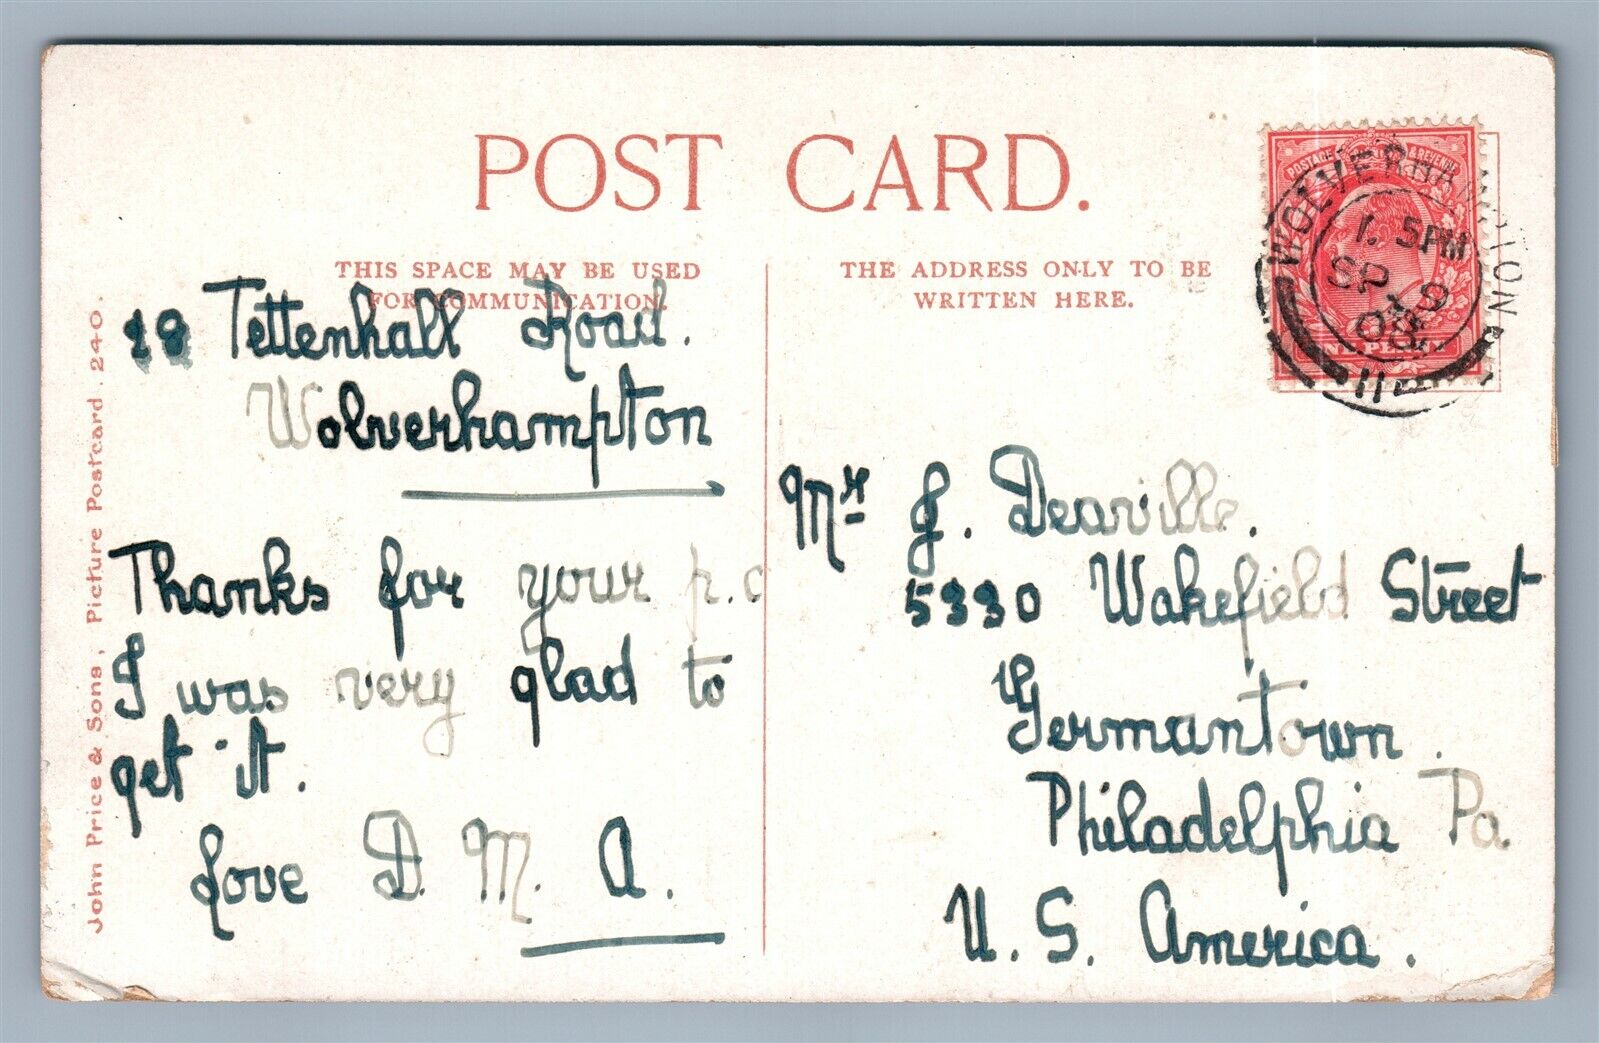 POST CARD.
THIS SPACE MAY BE USED
FOR COMMUNICATION.
THE ADDRESS ONLY TO BE
WRITTEN HERE.
John Price & Sons, Picture Postcard. 240.
28 Tettenhall Road.
Wolverhampton
Thanks for your p.c
I was very glad to
get it.
Love D. M. A.
POSTAGE & REVENUE
ONE PENNY
WOLVERHAMPTON
1. 5PM
SP 9
08
Mr J. Dearville.
5330 Wakefield Street
Germantown.
Philadelphia Pa.
U. S. America.